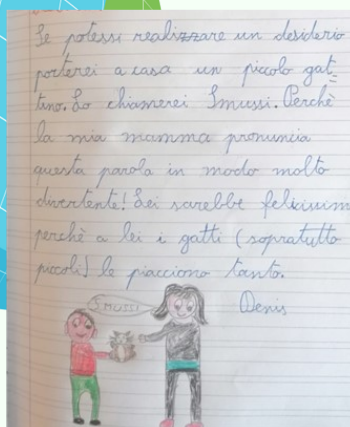 Se potessi realizzare un desiderio
porterei a casa un piccolo gat=
tino. Lo chiamerei Smussi. Perchè
la mia mamma pronuncia
questa parola in modo molto
divertente! Lei sarebbe felicissim
perchè a lei i gatti (sopratutto
piccoli) le piacciono tanto.
SMUSSI
Denis